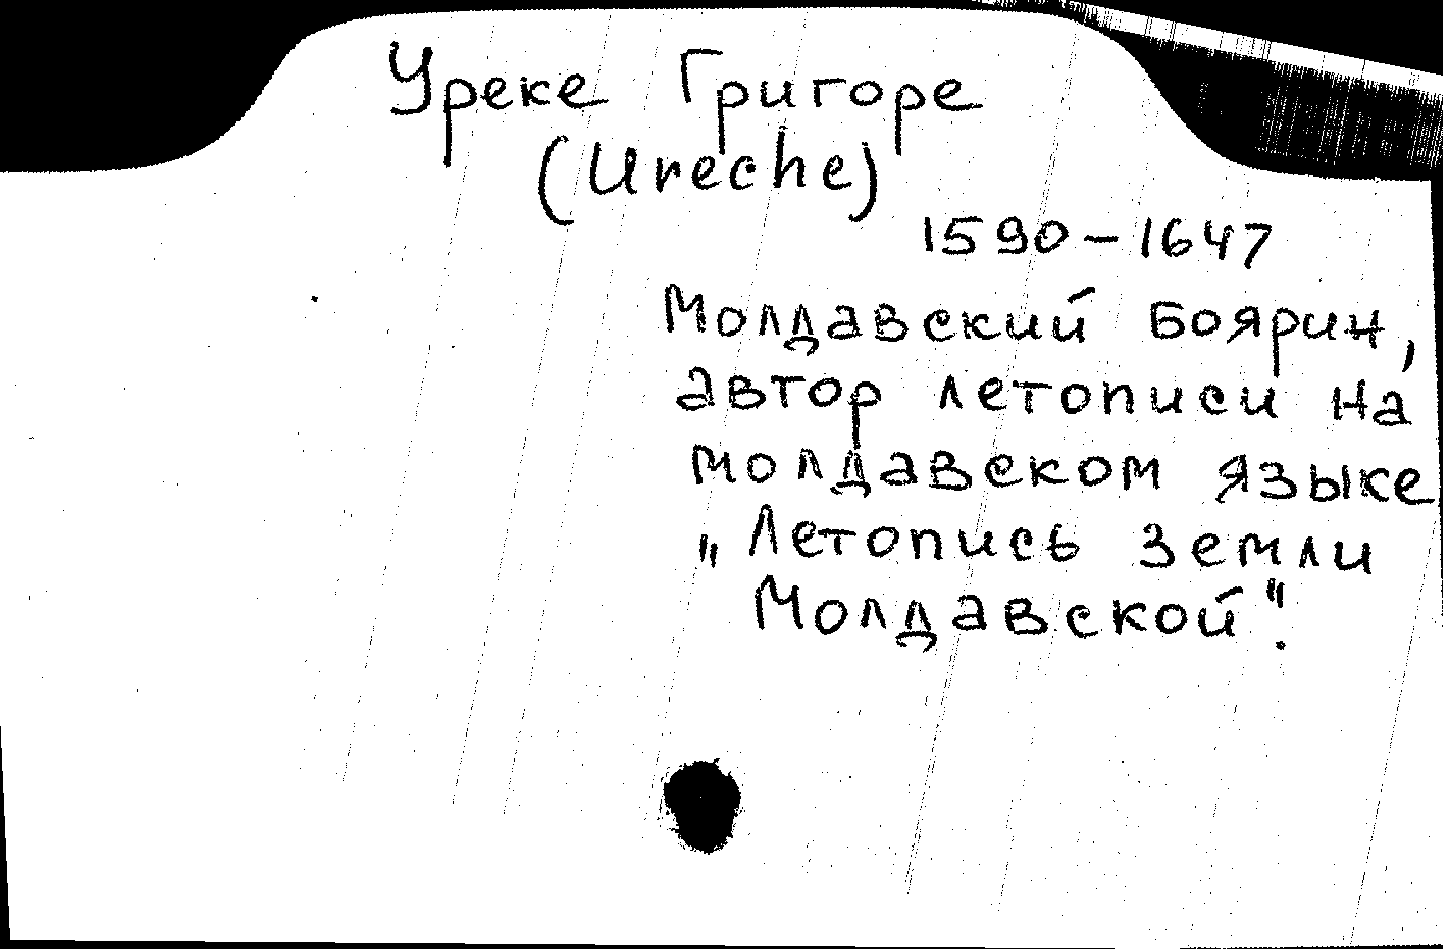 Уреке Григоре
(Ureche)
1590-1647
Молдавский боярин,
автор летописи на
молдавском языке
„Летопись земли
Молдавской".